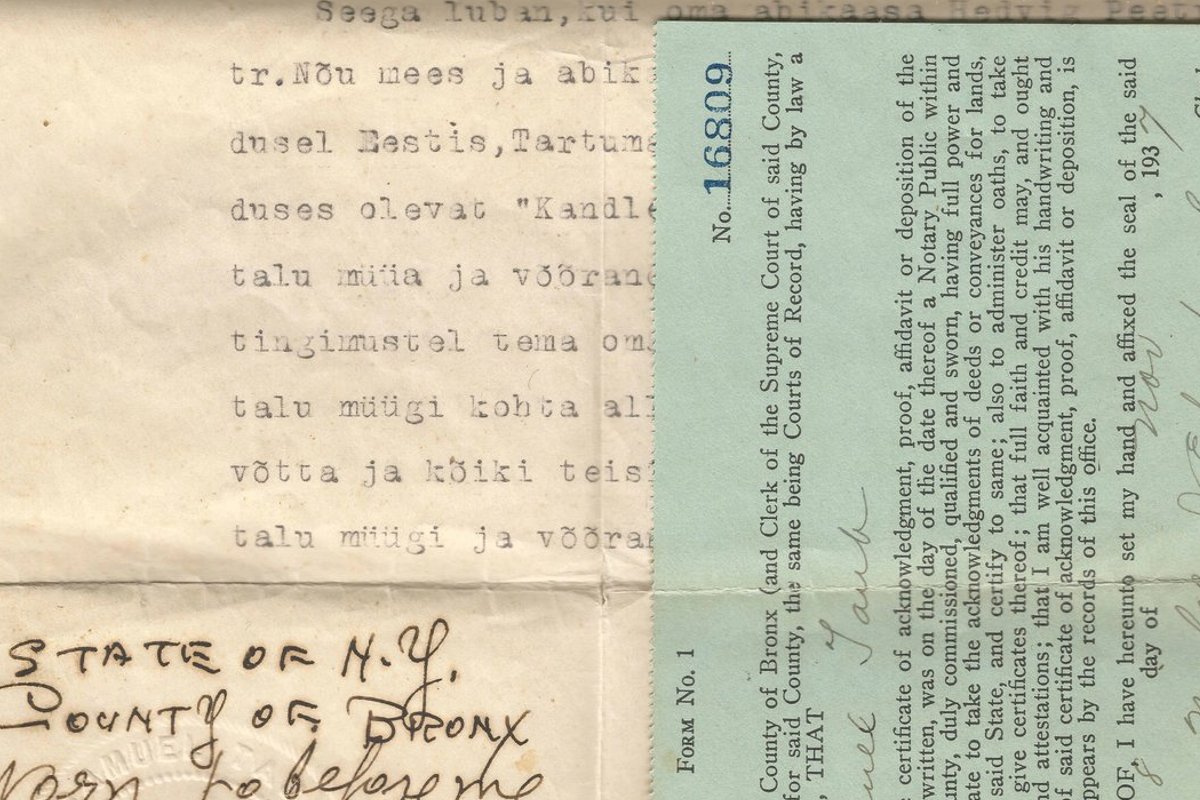 Seega luban, kui oma abikaasa Hedvig Peet
tr.Nõu mees ja abik
dusel Eestis,Tartuma
duses olevat "Kandle
talu müüa ja võõran
tingimustel tema om
talu müügi kohta all
võtta ja kõiki teis
talu müügi ja võõra
STATE OF N.Y.
COUNTY OF BRONX
to before me
FORM NO. 1
No. 16809
County of Bronx (and Clerk of the Supreme Court of said County,
for said County, the same being Courts of Record, having by law a
, THAT
Taub
certificate of acknowledgment, proof, affidavit or deposition of the
written, was on the day of the date thereof a Notary Public within
unty, duly commissioned, qualified and sworn, having full power and
ate to take the acknowledgments of deeds or conveyances for lands,
said State, and certify to same; also to administer oaths, to take
give certificates thereof; that full faith and credit may, and ought
nd attestations; that I am well acquainted with his handwriting and
f said certificate of acknowledgment, proof, affidavit or deposition, is
ppears by the records of this office.
OF, I have hereunto set my hand and affixed the seal of the said
8 day of Nov , 1937